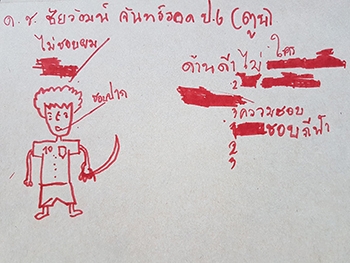 ด.ช. ชัยวัฒน์ จันทร์วอด ป.6 (ตูน)
ไม่ชอบผม
ชอบปาก
10
ด้านดำ ไม่ ใคร
2
1 ความชอบ
1 ชอบกีฬา
2
3